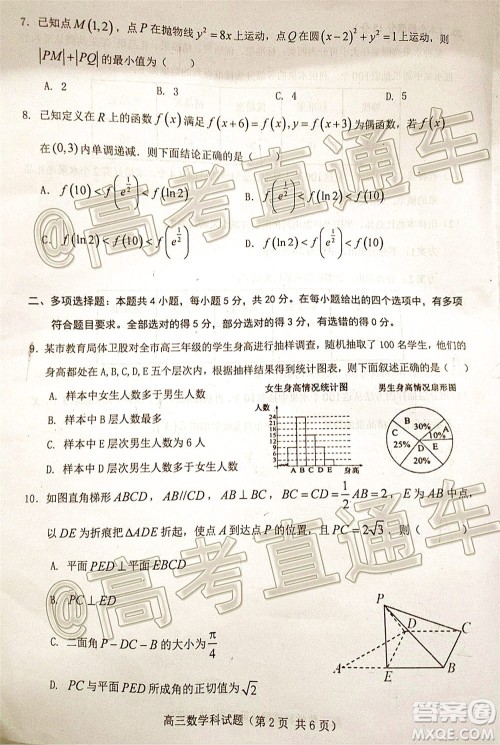 7. 已知点 M(1,2)，点 P 在抛物线 y²=8x 上运动，点 Q 在圆 (x-2)²+y²=1 上运动，则
|PM|+|PQ| 的最小值为（　　）
A. 2　　B. 3　　C. 4　　D. 5
8. 已知定义在 R 上的函数 f(x) 满足 f(x+6)=f(x), y=f(x+3) 为偶函数，若 f(x)
在 (0,3) 内单调递减．则下面结论正确的是（　　）
A. f(10)<f(e^{1/2})<f(ln2)　　B. f(e^{1/2})<f(ln2)<f(10)
C. f(ln2)<f(10)<f(e^{1/2})　　D. f(ln2)<f(e^{1/2})<f(10)
二、多项选择题：本题共 4 小题，每小题 5 分，共 20 分。在每小题给出的四个选项中，有多项
符合题目要求。全部选对的得 5 分，部分选对的得 3 分，有选错的得 0 分。
9. 某市教育局体卫股对全市高三年级的学生身高进行抽样调查，随机抽取了 100 名学生，他们的
身高都处在 A,B,C,D,E 五个层次内，根据抽样结果得到统计图表，则下面叙述正确的是（　　）
A. 样本中女生人数多于男生人数
B. 样本中 B 层人数最多
C. 样本中 E 层次男生人数为 6 人
D. 样本中 D 层次男生人数多于女生人数
女生身高情况统计图
人数
24
21
18
15
12
9
6
3
A B C D E 身高
男生身高情况扇形图
B 30%
A 10%
C 25%
E 15%
D 20%
10. 如图直角梯形 ABCD，AB//CD，AB⊥BC，BC=CD=1/2 AB=2，E 为 AB 中点，
以 DE 为折痕把 △ADE 折起，使点 A 到达点 P 的位置，且 PC=2√3．则（　　）
A. 平面PED⊥平面EBCD
B. PC⊥ED
C. 二面角 P-DC-B 的大小为 π/4
D. PC 与平面PED 所成角的正切值为 √2
P
D
C
A
E
B
高三数学科试题（第 2 页 共 6 页）
@高考直通车
@高考直通车
答案圈